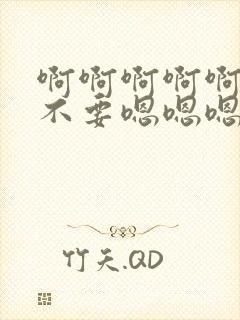 啊啊啊啊啊
不要嗯嗯嗯
竹天.QD